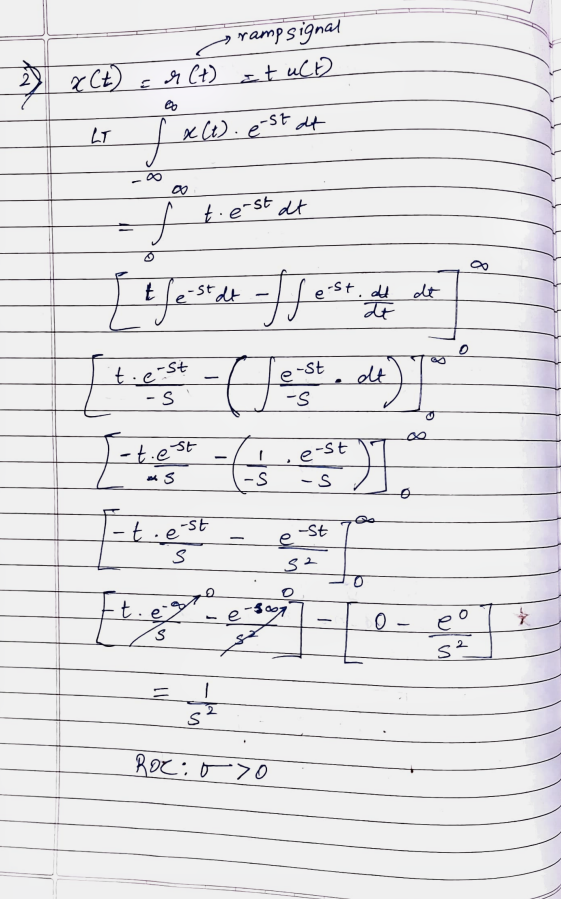 → ramp signal
2) x(t) = r(t) = t u(t)
LT ∫_{-∞}^{∞} x(t) · e^{-st} dt
= ∫_{0}^{∞} t · e^{-st} dt
[ t ∫ e^{-st} dt - ∫ ∫ e^{-st} · dt/dt dt ]_{0}^{∞}
[ t · e^{-st}/-s - ( ∫ e^{-st}/-s · dt ) ]_{0}^{∞}
[ -t · e^{-st}/s - ( 1/-s · e^{-st}/-s ) ]_{0}^{∞}
[ -t · e^{-st}/s - e^{-st}/s² ]_{0}^{∞}
[ -t · e^{-∞}/s → 0 - e^{-s∞}/s² → 0 ] - [ 0 - e^0/s² ]
= 1/s²
ROC : σ > 0